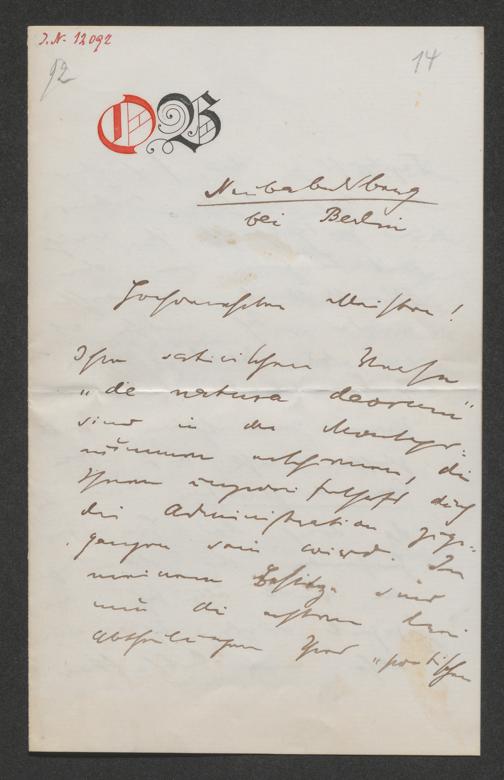 J. N. 12092
92
14
OB
Neubabelsberg
bei Berlin
Hochverehrter Meister!
Ihre satirischen Verse
„de natura deorum"
sind in der Montags-
nummer erschienen, die
Ihnen inzwischen durch
die Administration zuge-
gangen sein wird. In
meinem Besitze sind
nun die ersten drei
Abtheilungen Ihrer „poetischen